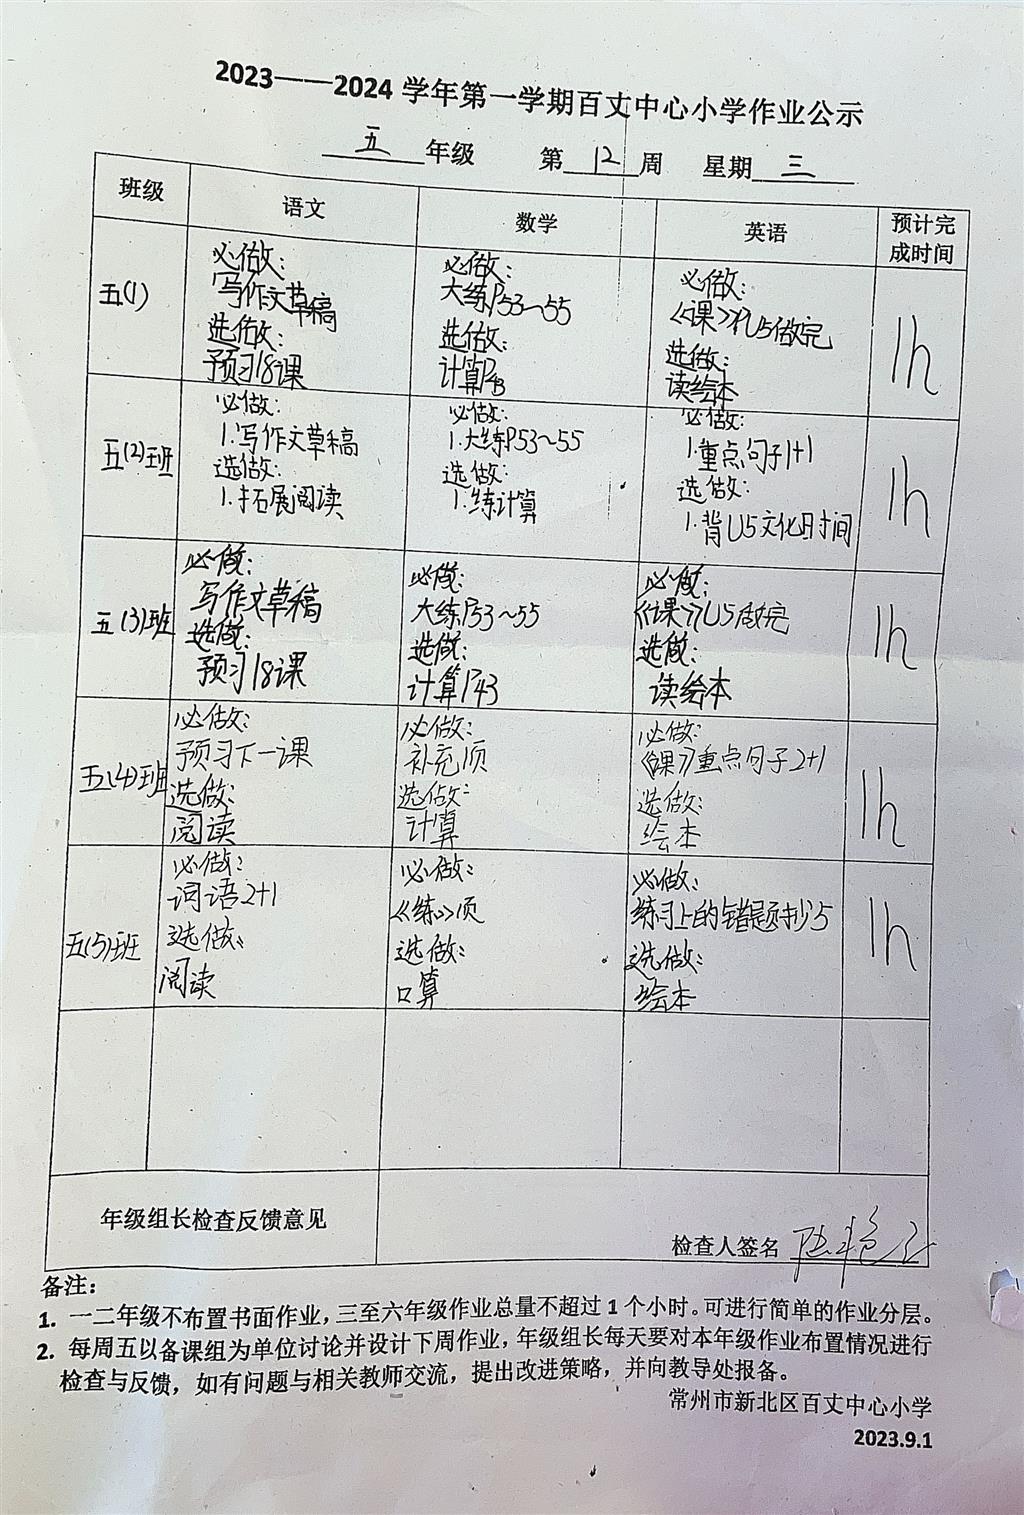 2023——2024 学年第一学期百丈中心小学作业公示
五 年级 第 12 周 星期 三
班级 语文 数学 英语 预计完成时间
五(1)
必做：
写作文草稿
选做：
预习18课
必做：
大练P53~55
选做：
计算P43
必做：
《课》U5做完
选做：
读绘本
1h
五(2)班
必做：
1.写作文草稿
选做：
1.拓展阅读
必做：
1.大练P53~55
选做：
1.练计算
必做：
1.重点句子1+1
选做：
1.背U5文化时间
1h
五(3)班
必做：
写作文草稿
选做：
预习18课
必做：
大练P53~55
选做：
计算P43
必做：
《课》U5做完
选做：
读绘本
1h
五(4)班
必做：
预习下一课
选做：
阅读
必做：
补充1页
选做：
计算
必做：
《课》重点句子2+1
选做：
绘本
1h
五(5)班
必做：
词语2+1
选做：
阅读
必做：
《练》1页
选做：
口算
必做：
练习上的错题抄5
选做：
绘本
1h
年级组长检查反馈意见
检查人签名
备注：
1. 一二年级不布置书面作业，三至六年级作业总量不超过 1 个小时。可进行简单的作业分层。
2. 每周五以备课组为单位讨论并设计下周作业，年级组长每天要对本年级作业布置情况进行
检查与反馈，如有问题与相关教师交流，提出改进策略，并向教导处报备。
常州市新北区百丈中心小学
2023.9.1